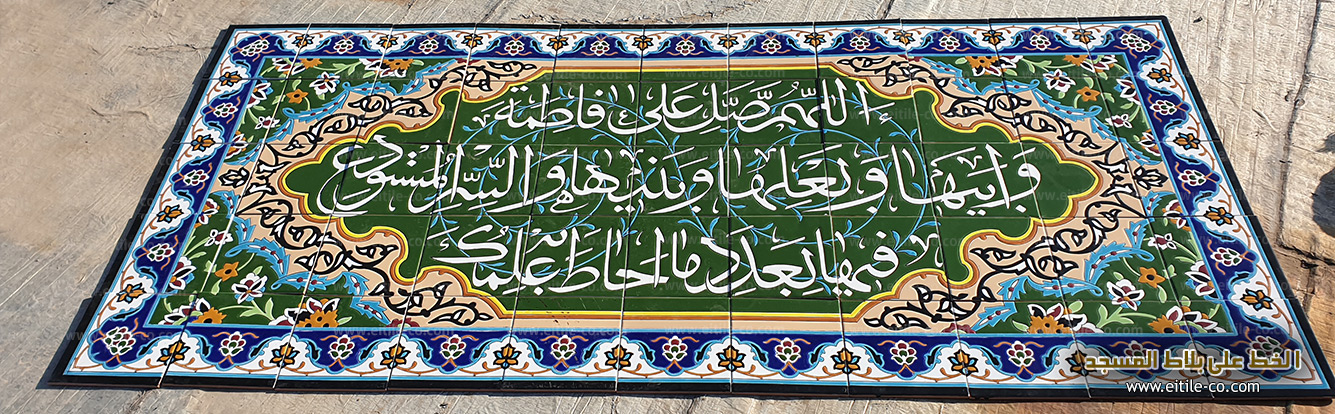 اللهم صل على فاطمة
وابيها وبعلها وبنيها والسر المستودع
فيها بعدد ما احاط به علمك
الخط على بلاط المسجد
www.eitile-co.com